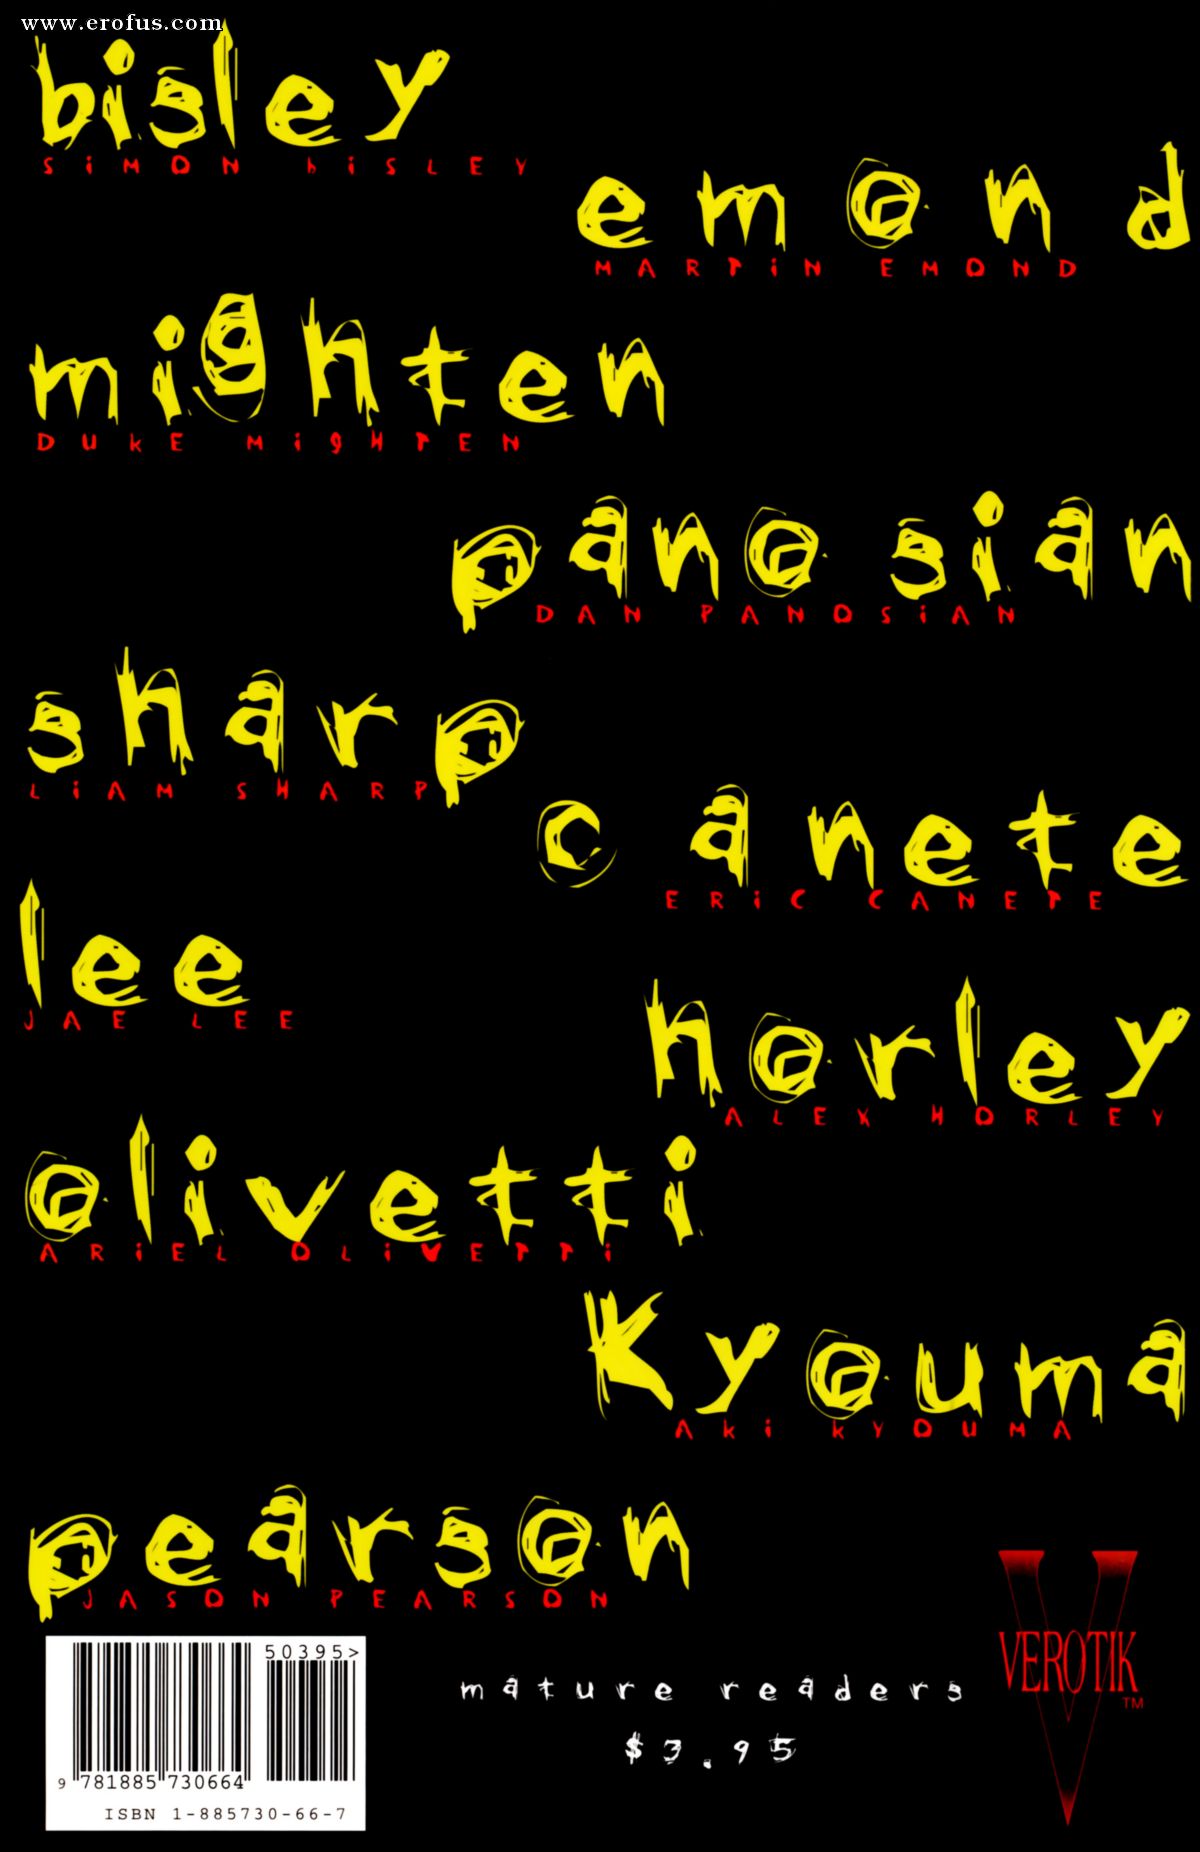 www.erofus.com
bisley
SiMON biSLEY
emond
MARTiN EMOND
mighten
DUkE MigHTEN
panosian
DAN PANOSiAN
sharp
LiAM SHARP
canete
ERiC CANETE
lee
JAE LEE
horley
ALEX HORLEY
olivetti
ARiEL OLiVETTi
Kyouma
AKi KYOUMA
pearson
JASON PEARSON
50395>
9 781885 730664
ISBN 1-885730-66-7
mature readers
$3.95
VEROTIK™